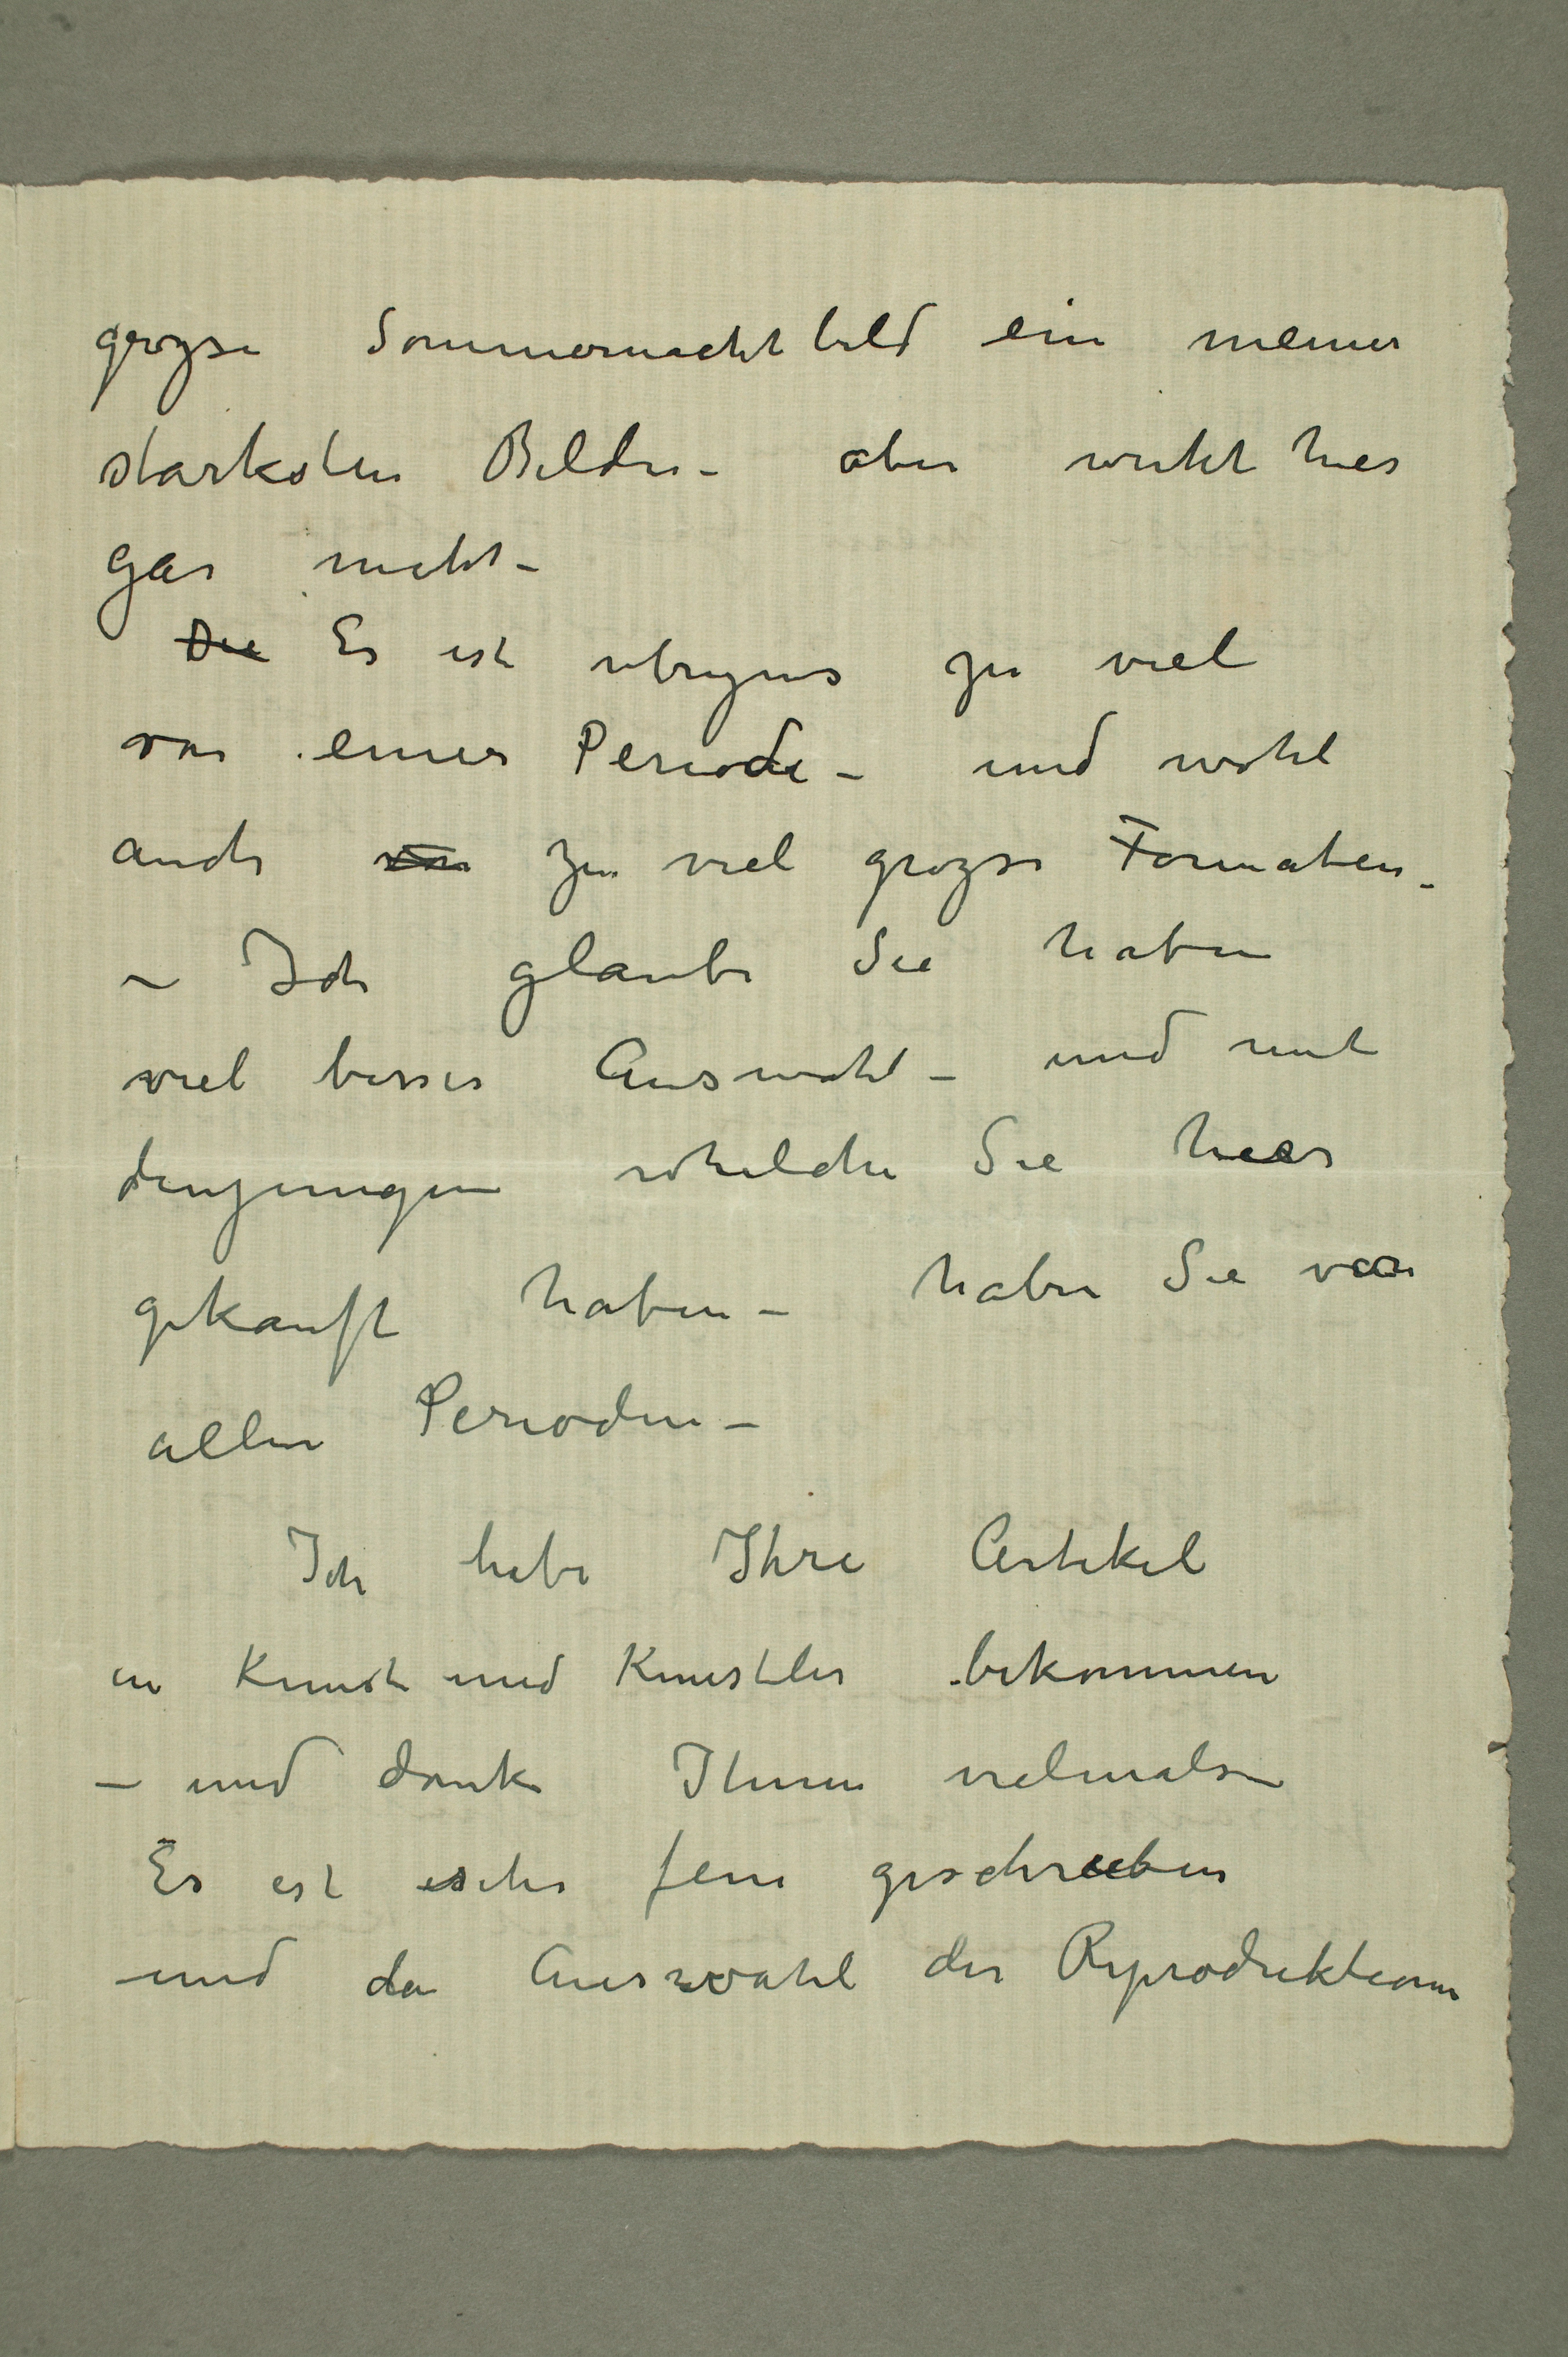 grozse Sommernachtbild ein meiner
starksten Bilder – aber wirkt hier
gar nicht –
Die Es ist ubrigens zu viel
von einer Periode – und wohl
auch von zu viel grozse Formaten –
– Ich glaube Sie haben
viel besser Auswahl – und mit
denjenigen whelche Sie hier
gekauft haben – haben Sie von
allen Perioden –
Ich habe Ihre Artikel
in Kunst und Kunstler bekommen
– und danke Ihnen vielmals –
Es ist sehr fein geschrieben
und da Auswahl der Reproduktionen